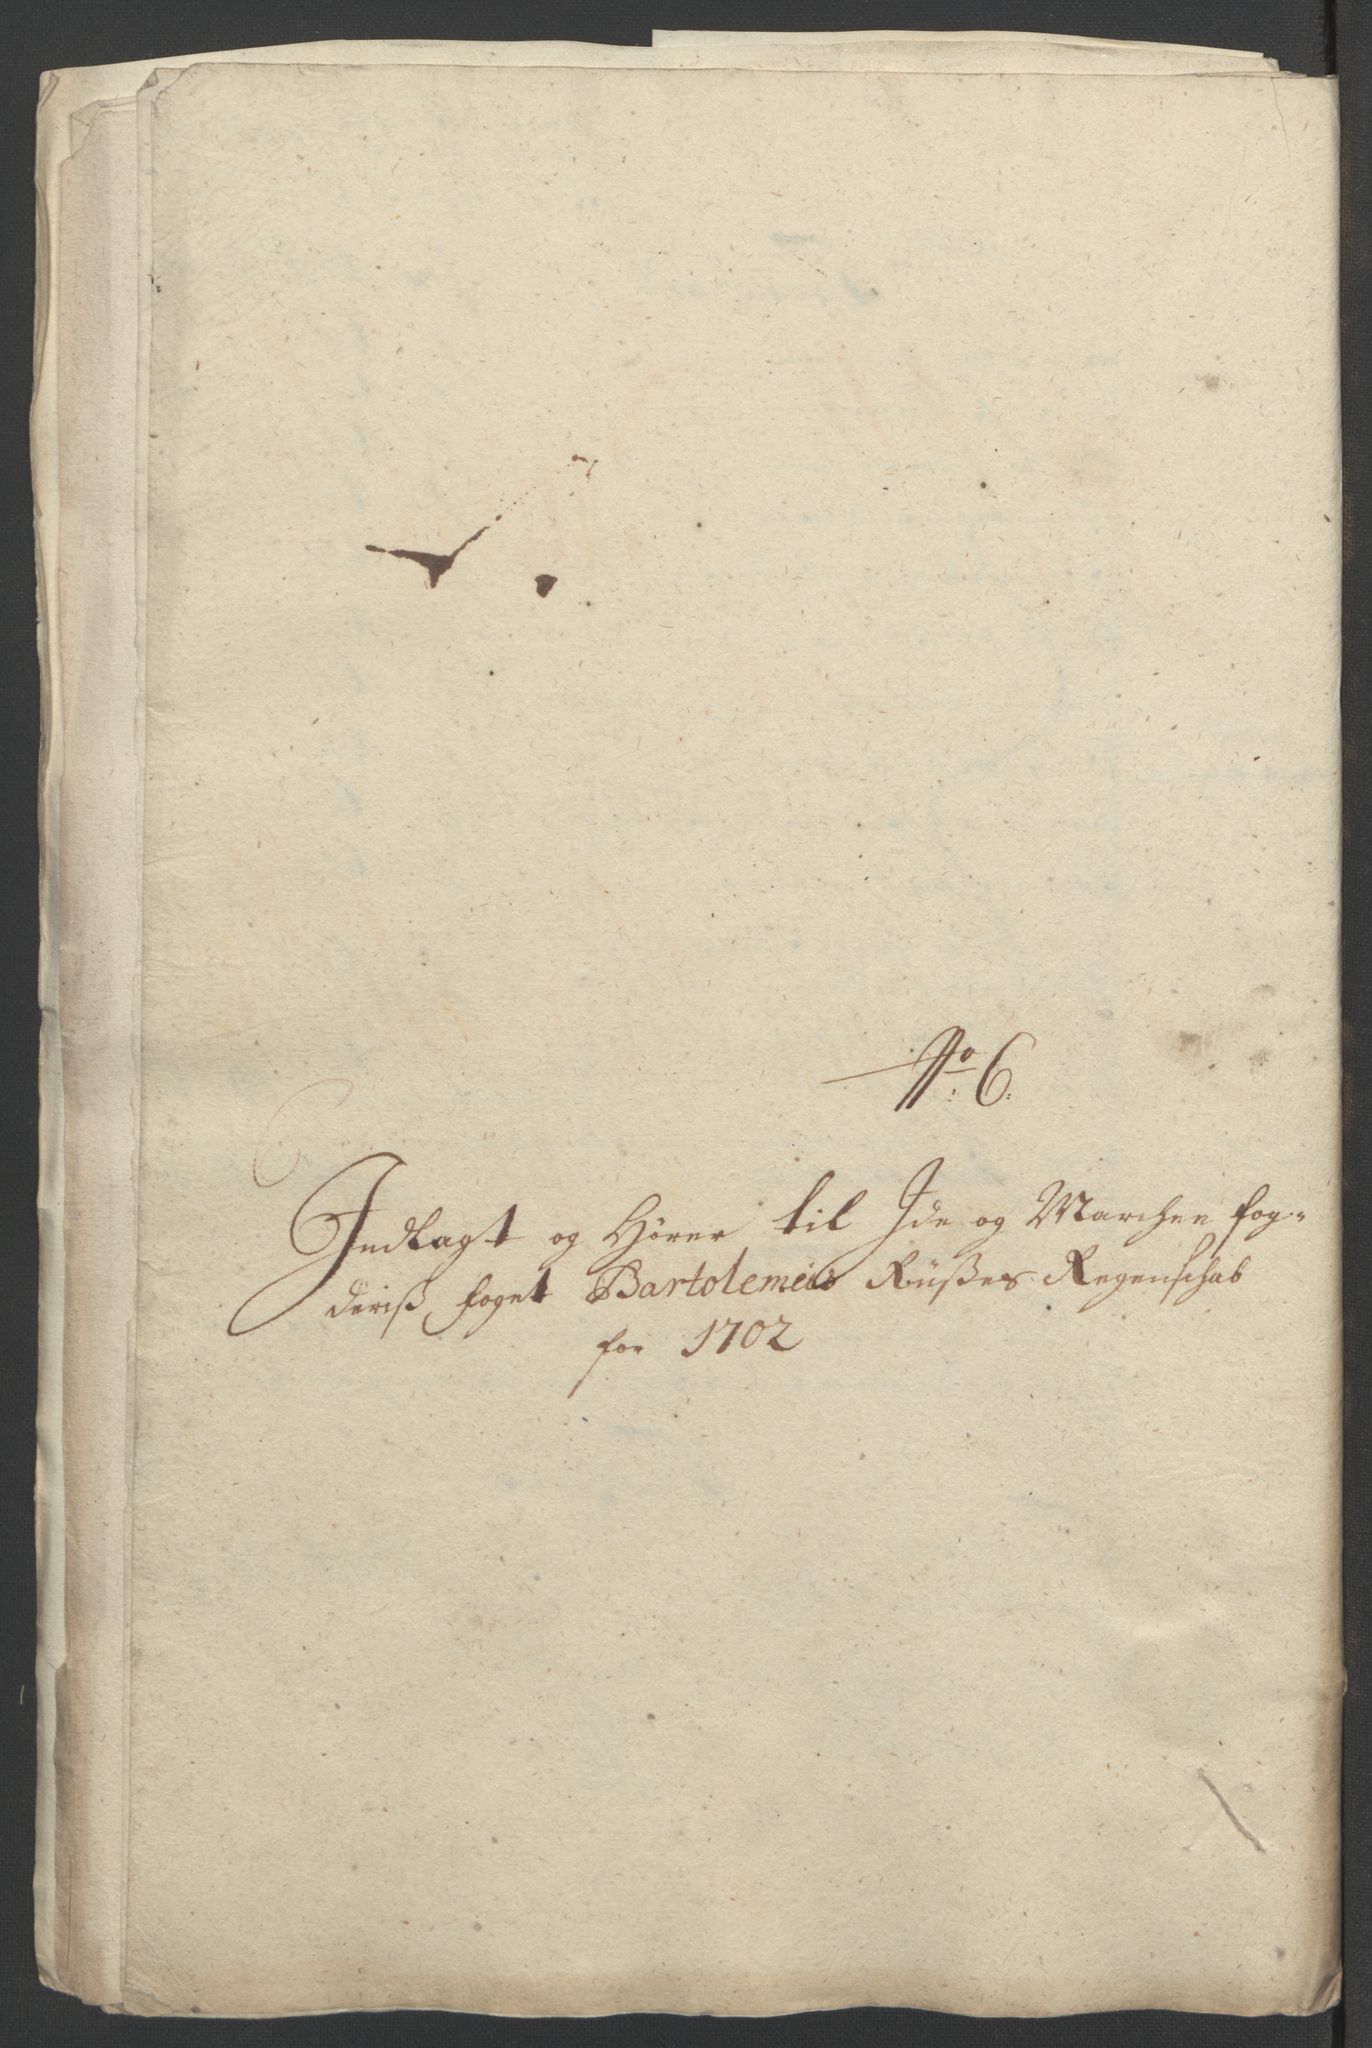 No: 6:
Indlagt og Hører til Ide og Marchen fog-
deriß foget Bartolemeus Rüßes Regenschab
for 1702